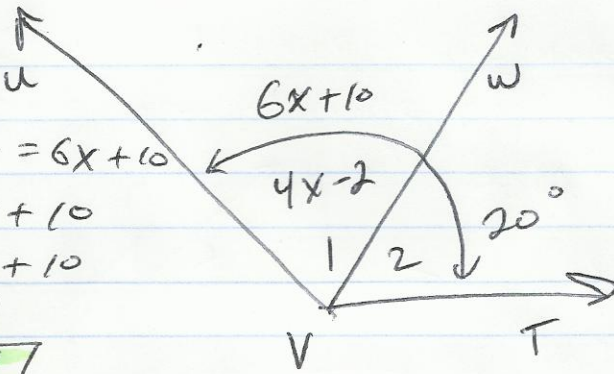 u
w
6x+10
= 6x+10
4x-2
+ 10
20°
+ 10
1
2
V
T